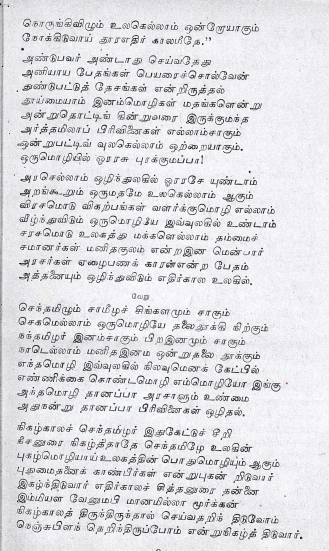 நொருங்கிவிழும் உலகெல்லாம் ஒன்றேயாகும்
நோக்கிடுவாய் தூரஎதிர் காலமீதே."
அண்டுபவர் அண்டாது செய்வதேது
அனியாய பேதங்கள் பெயரைச்சொல்வேன்
துண்டுபட்டுத் தேசங்கள் என்றிருத்தல்
தூய்மையாம் இனம்மொழிகள் மதங்களென்று
அன்றுதொட்டிங் கின்றுவரை இருக்குமந்த
அர்த்தமிலாப் பிரிவினைகள் எல்லாம்சாகும்
ஒன்றுபட்டிவ் வுலகெல்லாம் ஒற்றையாகும்.
ஒருமொழியில் ஓரரசு புரக்குமப்பா!
அரசெல்லாம் ஒழிந்துலகில் ஓரரசே யுண்டாம்
அறங்கூறும் ஒருமதமே உலகெல்லாம் ஆகும்
விரசமொடு விகற்பங்கள் வளர்க்குமொழி எல்லாம்
வீழ்ந்துவிடும் ஒருமொழியே இவ்வுலகில் உண்டாம்
சரசமொடு உலகத்து மக்களெல்லாம் தம்மைச்
சமானர்கள் மனிதகுலம் என்றஇன மென்பார்
அரசர்கள் ஏழைபணக் காரன்என்ற பேதம்
அத்தனையும் ஒழிந்துவிடும் எதிர்கால உலகில்.
வேறு
செந்தமிழும் சாமீழச் சிங்களமும் சாகும்
செகமெல்லாம் ஒருமொழியே தலைதூக்கி நிற்கும்
நந்தமிழர் இனம்சாகும் பிறஇனமும் சாகும்
நாடெல்லாம் மனிதஇனம ஒன்றுதலை தூக்கும்
எந்தமொழி இவ்வுலகில் நிலவுமெனக் கேட்பில்
எண்ணிக்கை கொண்டமொழி எம்மொழியோ இங்கு
அந்தமொழி தானப்பா அரசாளும் உண்மை
அதுநன்று தானப்பா பிரிவினைகள் ஒழிதல்.
நிகழ்காலச் செந்தமிழர் இதுகேட்டுச் சீறி
நீசனுரை நிகழ்த்தாதே செந்தமிழே உலகின்
புகழ்மொழியாய் உலகத்தின் பொதுமொழியும் ஆகும்
புதுமைதனைக் காண்பீர்கள் என்றுபுகன் றிடுவார்
இகழ்ந்திடுவார் எதிர்காலச் சித்தனுரை தன்னை
இம்மியள வேனுமபி மானமில்லா மூர்க்கன்
நிகழ்காலத் திருந்திருந்தால் செய்வதறிந் திடுவோம்
நெஞ்சுபிளந் தெறிந்திருப்போம் என்றுநிகழ்த் திடுவார்.